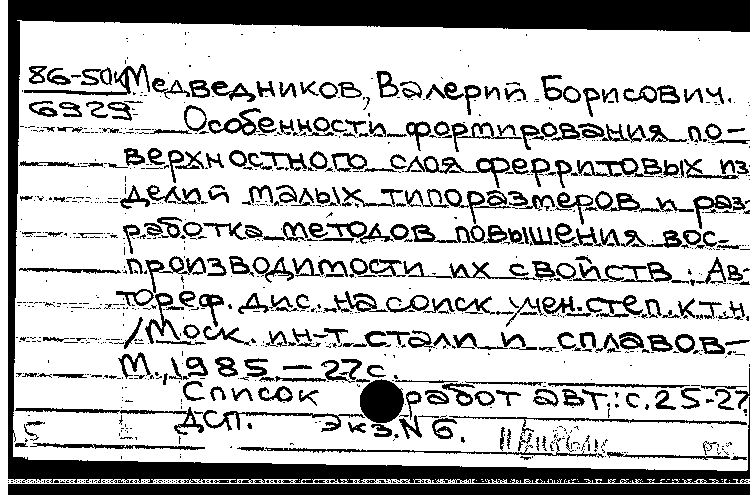 86-50к Медведников, Валерий Борисович.
6929
Особенности формирования по-
верхностного слоя ферритовых из
делий малых типоразмеров и раз
работка методов повышения вос-
производимости их свойств: Ав-
тореф. дис. на соиск учен. степ. к.т.н.
/Моск. ин-т стали и сплавов-
М., 1985 - 27 с.
Список работ авт.: с. 25-27
ДСП. Экз. N 6.
5